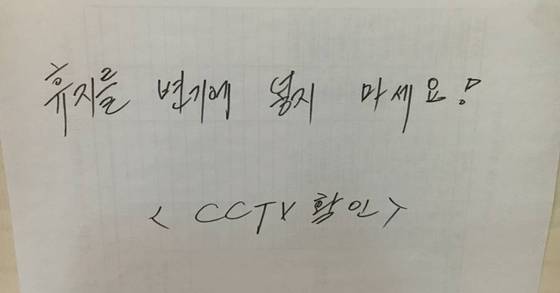 휴지를 변기에 넣지 마세요!
< CCTV 확인 >